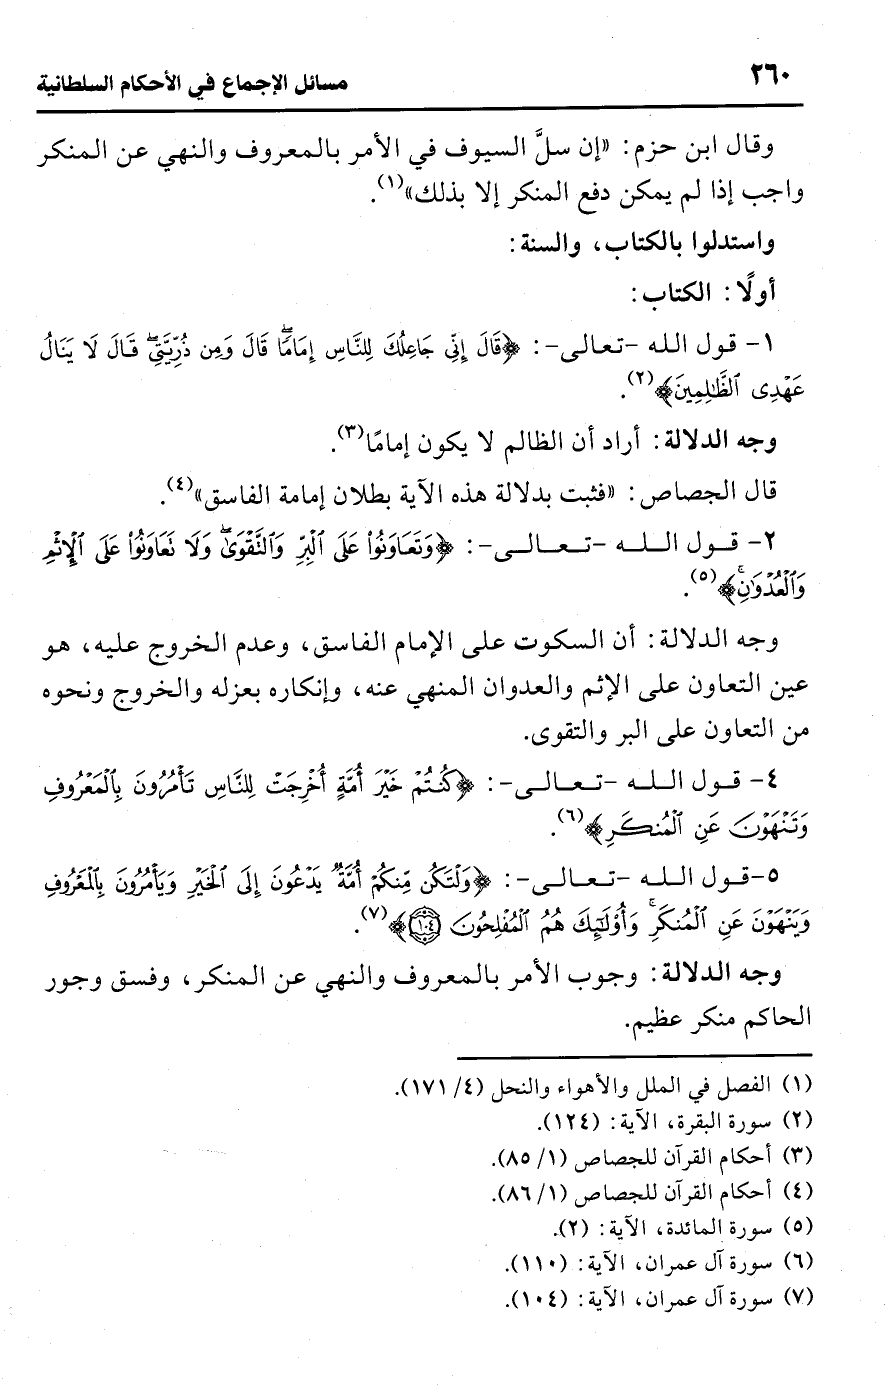 ٢٦٠
مسائل الإجماع في الأحكام السلطانية
وقال ابن حزم: «إن سلَّ السيوف في الأمر بالمعروف والنهي عن المنكر
واجب إذا لم يمكن دفع المنكر إلا بذلك»(١).
واستدلوا بالكتاب، والسنة:
أولًا: الكتاب:
١- قول الله -تعالى-: ﴿قَالَ إِنِّي جَاعِلُكَ لِلنَّاسِ إِمَامًاۖ قَالَ وَمِن ذُرِّيَّتِيۖ قَالَ لَا يَنَالُ
عَهْدِى ٱلظَّٰلِمِينَ﴾(٢).
وجه الدلالة: أراد أن الظالم لا يكون إمامًا(٣).
قال الجصاص: «فثبت بدلالة هذه الآية بطلان إمامة الفاسق»(٤).
٢- قول الله -تعالى-: ﴿وَتَعَاوَنُواْ عَلَى ٱلْبِرِّ وَٱلتَّقْوَىٰۖ وَلَا تَعَاوَنُواْ عَلَى ٱلْإِثْمِ
وَٱلْعُدْوَٰنِۚ﴾(٥).
وجه الدلالة: أن السكوت على الإمام الفاسق، وعدم الخروج عليه، هو
عين التعاون على الإثم والعدوان المنهي عنه، وإنكاره بعزله والخروج ونحوه
من التعاون على البر والتقوى.
٤- قول الله -تعالى-: ﴿كُنتُمْ خَيْرَ أُمَّةٍ أُخْرِجَتْ لِلنَّاسِ تَأْمُرُونَ بِٱلْمَعْرُوفِ
وَتَنْهَوْنَ عَنِ ٱلْمُنكَرِ﴾(٦).
٥-قول الله -تعالى-: ﴿وَلْتَكُن مِّنكُمْ أُمَّةٌ يَدْعُونَ إِلَى ٱلْخَيْرِ وَيَأْمُرُونَ بِٱلْمَعْرُوفِ
وَيَنْهَوْنَ عَنِ ٱلْمُنكَرِۚ وَأُوْلَٰٓئِكَ هُمُ ٱلْمُفْلِحُونَ ١٠٤﴾(٧).
وجه الدلالة: وجوب الأمر بالمعروف والنهي عن المنكر، وفسق وجور
الحاكم منكر عظيم.
(١) الفصل في الملل والأهواء والنحل (٤/ ١٧١).
(٢) سورة البقرة، الآية: (١٢٤).
(٣) أحكام القرآن للجصاص (١/ ٨٥).
(٤) أحكام القرآن للجصاص (١/ ٨٦).
(٥) سورة المائدة، الآية: (٢).
(٦) سورة آل عمران، الآية: (١١٠).
(٧) سورة آل عمران، الآية: (١٠٤).